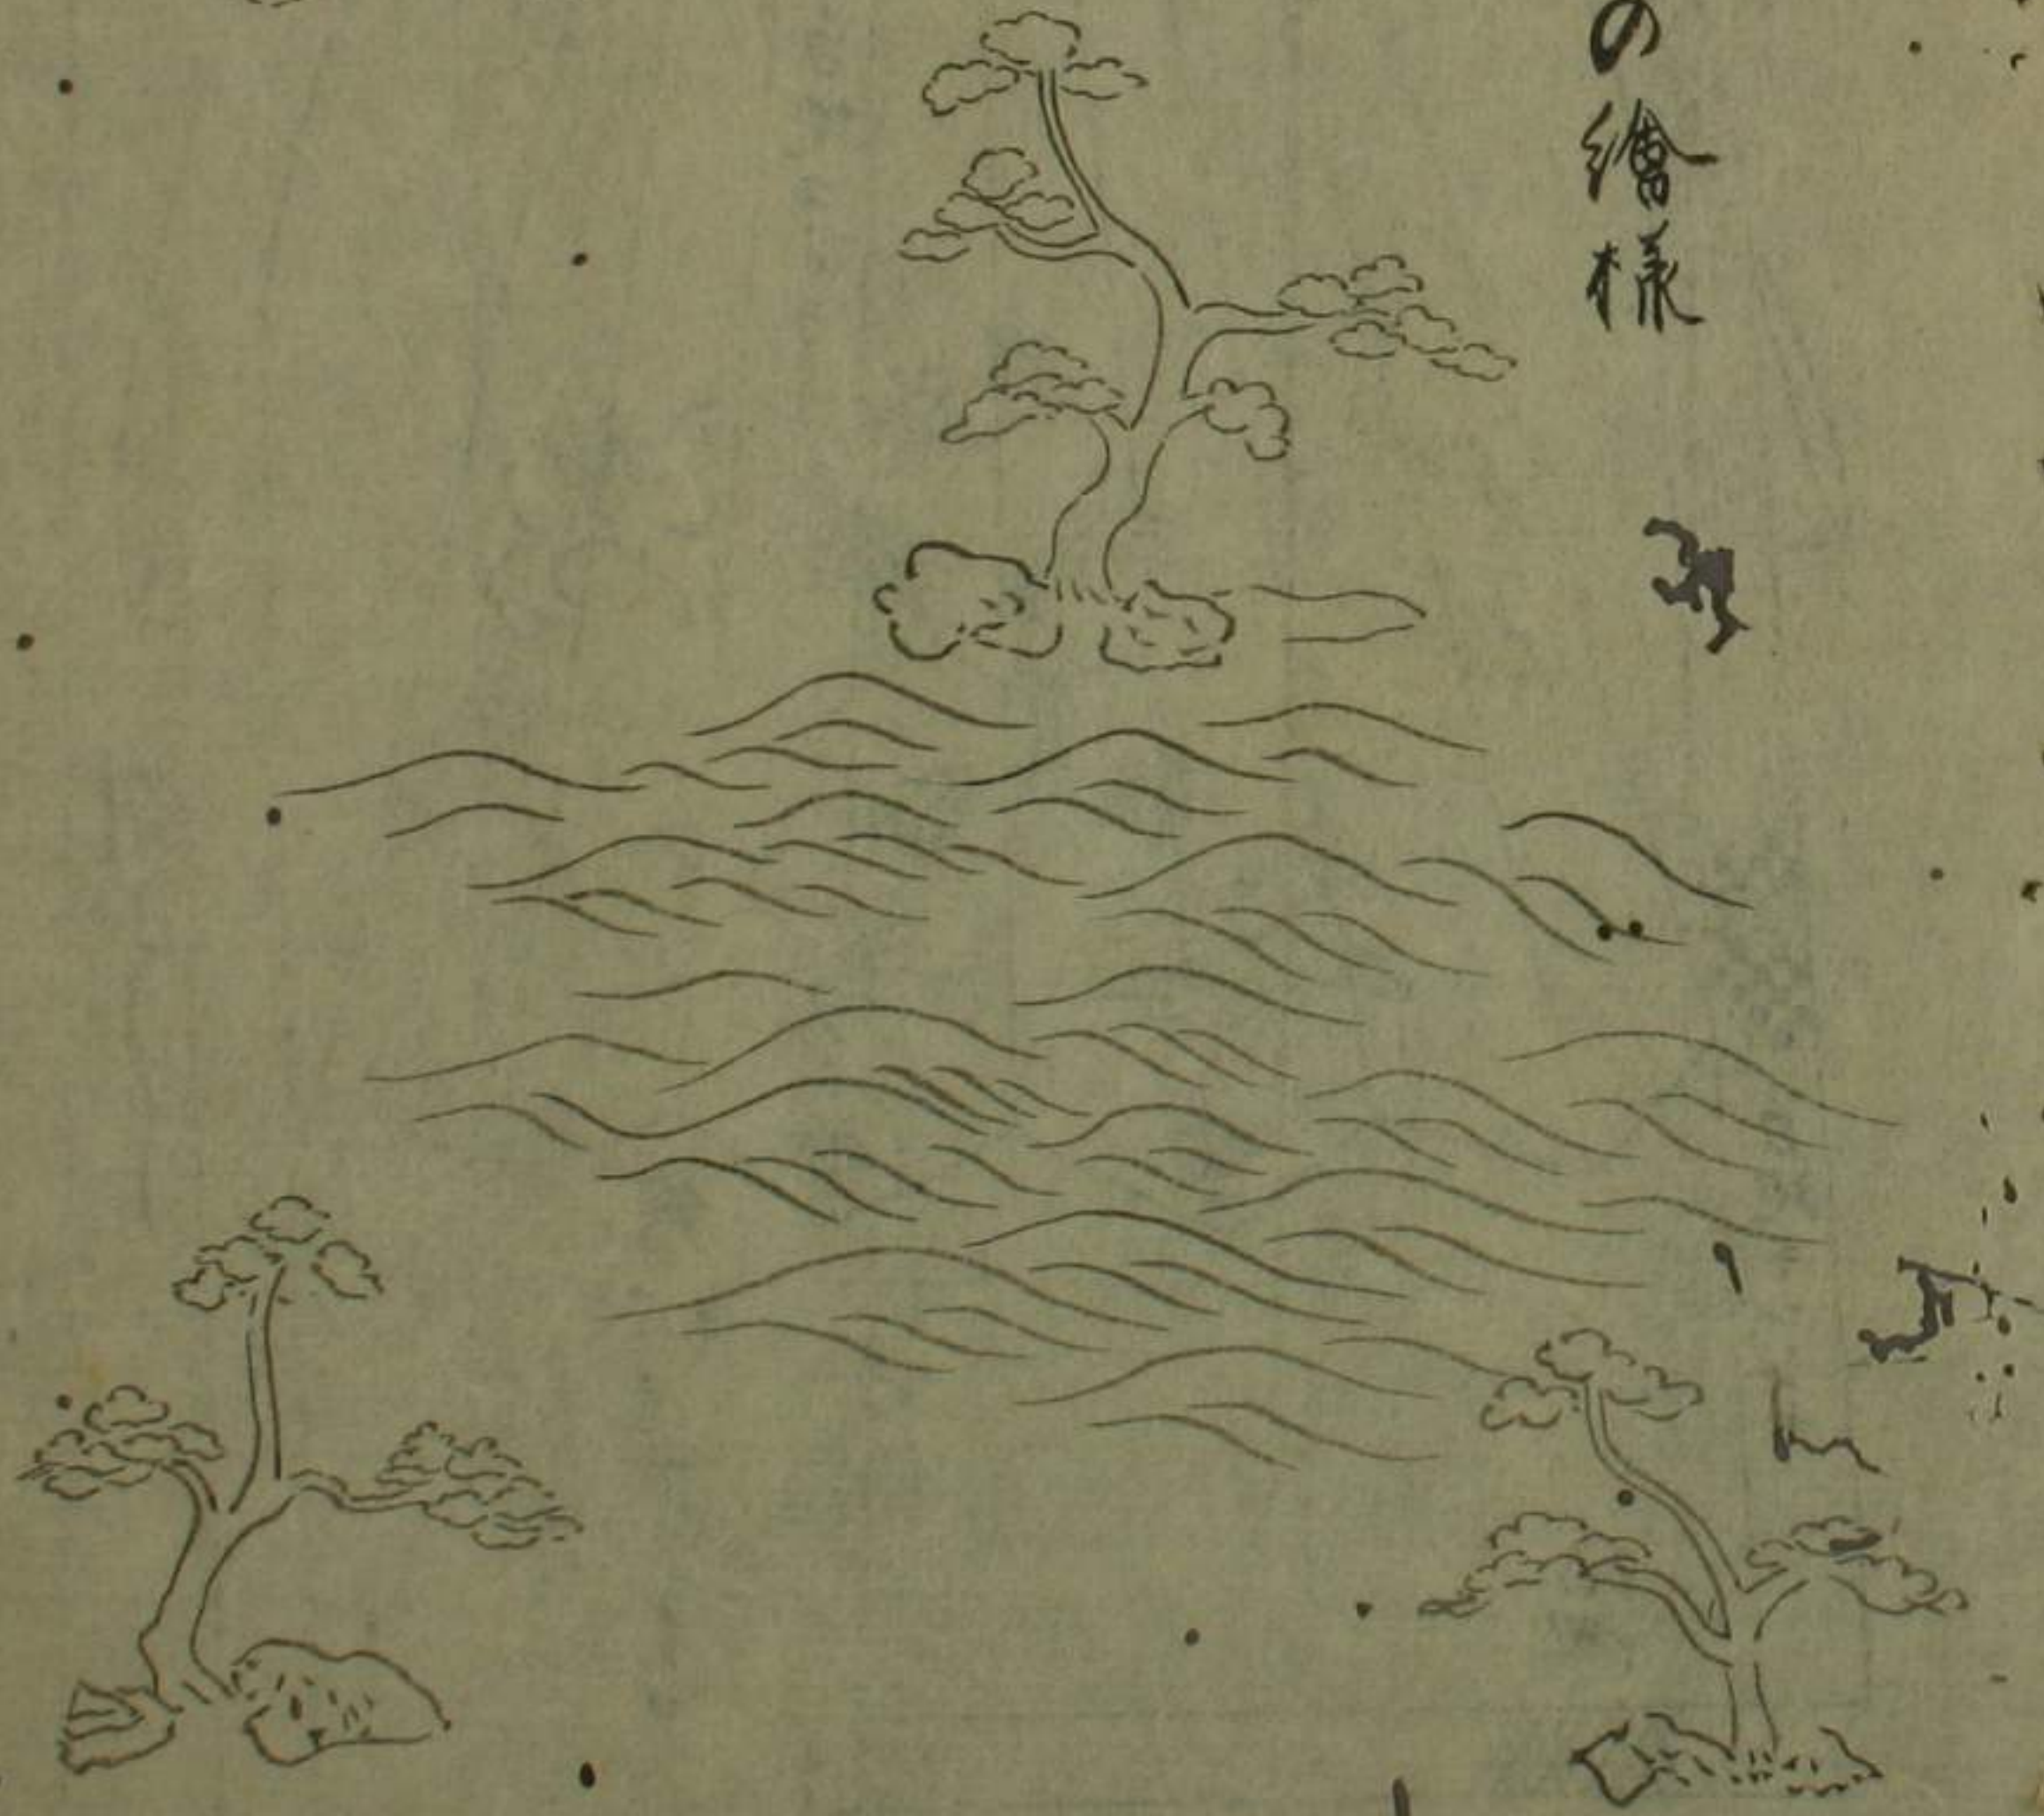 の繪様